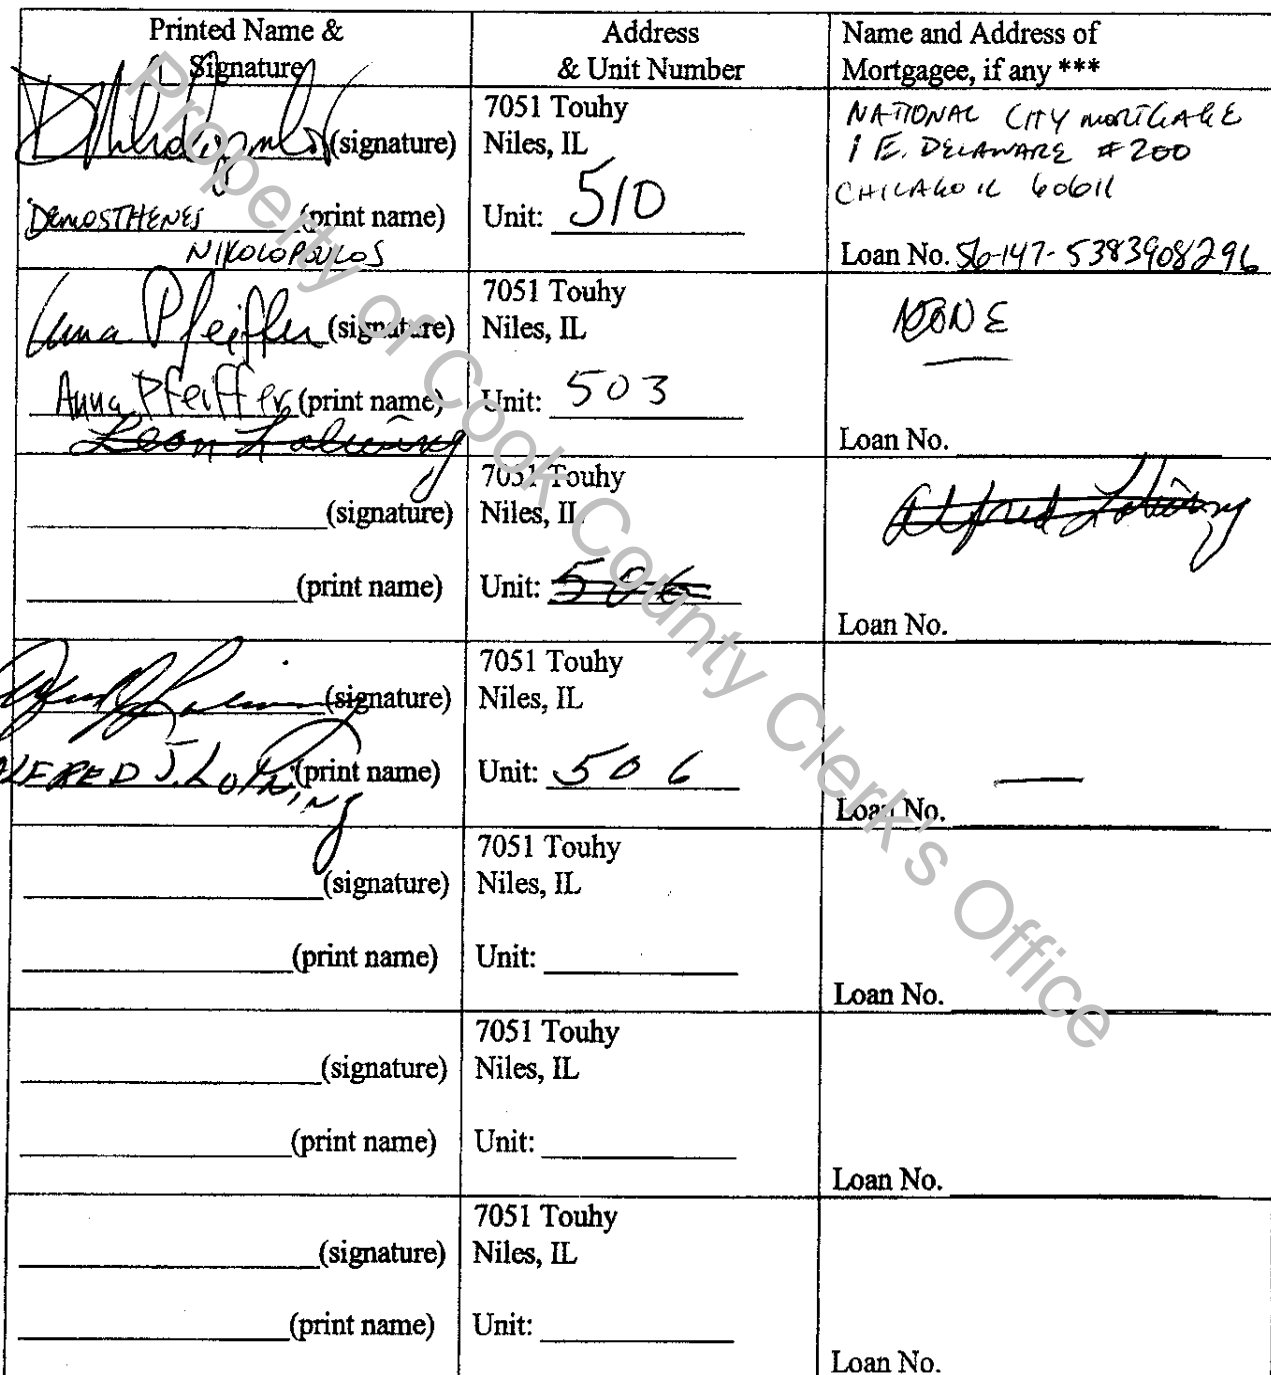 Printed Name & Signature
Address & Unit Number
Name and Address of Mortgagee, if any ***
(signature)
DEMOSTHENES (print name)
NIKOLOPOULOS
7051 Touhy
Niles, IL
Unit: 510
NATIONAL CITY MORTGAGE
1 E. DELAWARE #200
CHICAGO IL 60611
Loan No. 56-147-5383908296
Anna Pfeiffer (signature)
Anna Pfeiffer (print name)
7051 Touhy
Niles, IL
Unit: 503
NONE
Loan No.
Leon
(signature)
(print name)
7051 Touhy
Niles, IL
Unit: 506
Alfred
Loan No.
(signature)
ALFRED J. (print name)
7051 Touhy
Niles, IL
Unit: 506
Loan No.
(signature)
(print name)
7051 Touhy
Niles, IL
Unit:
Loan No.
(signature)
(print name)
7051 Touhy
Niles, IL
Unit:
Loan No.
(signature)
(print name)
7051 Touhy
Niles, IL
Unit:
Loan No.
Property of Cook County Clerk's Office